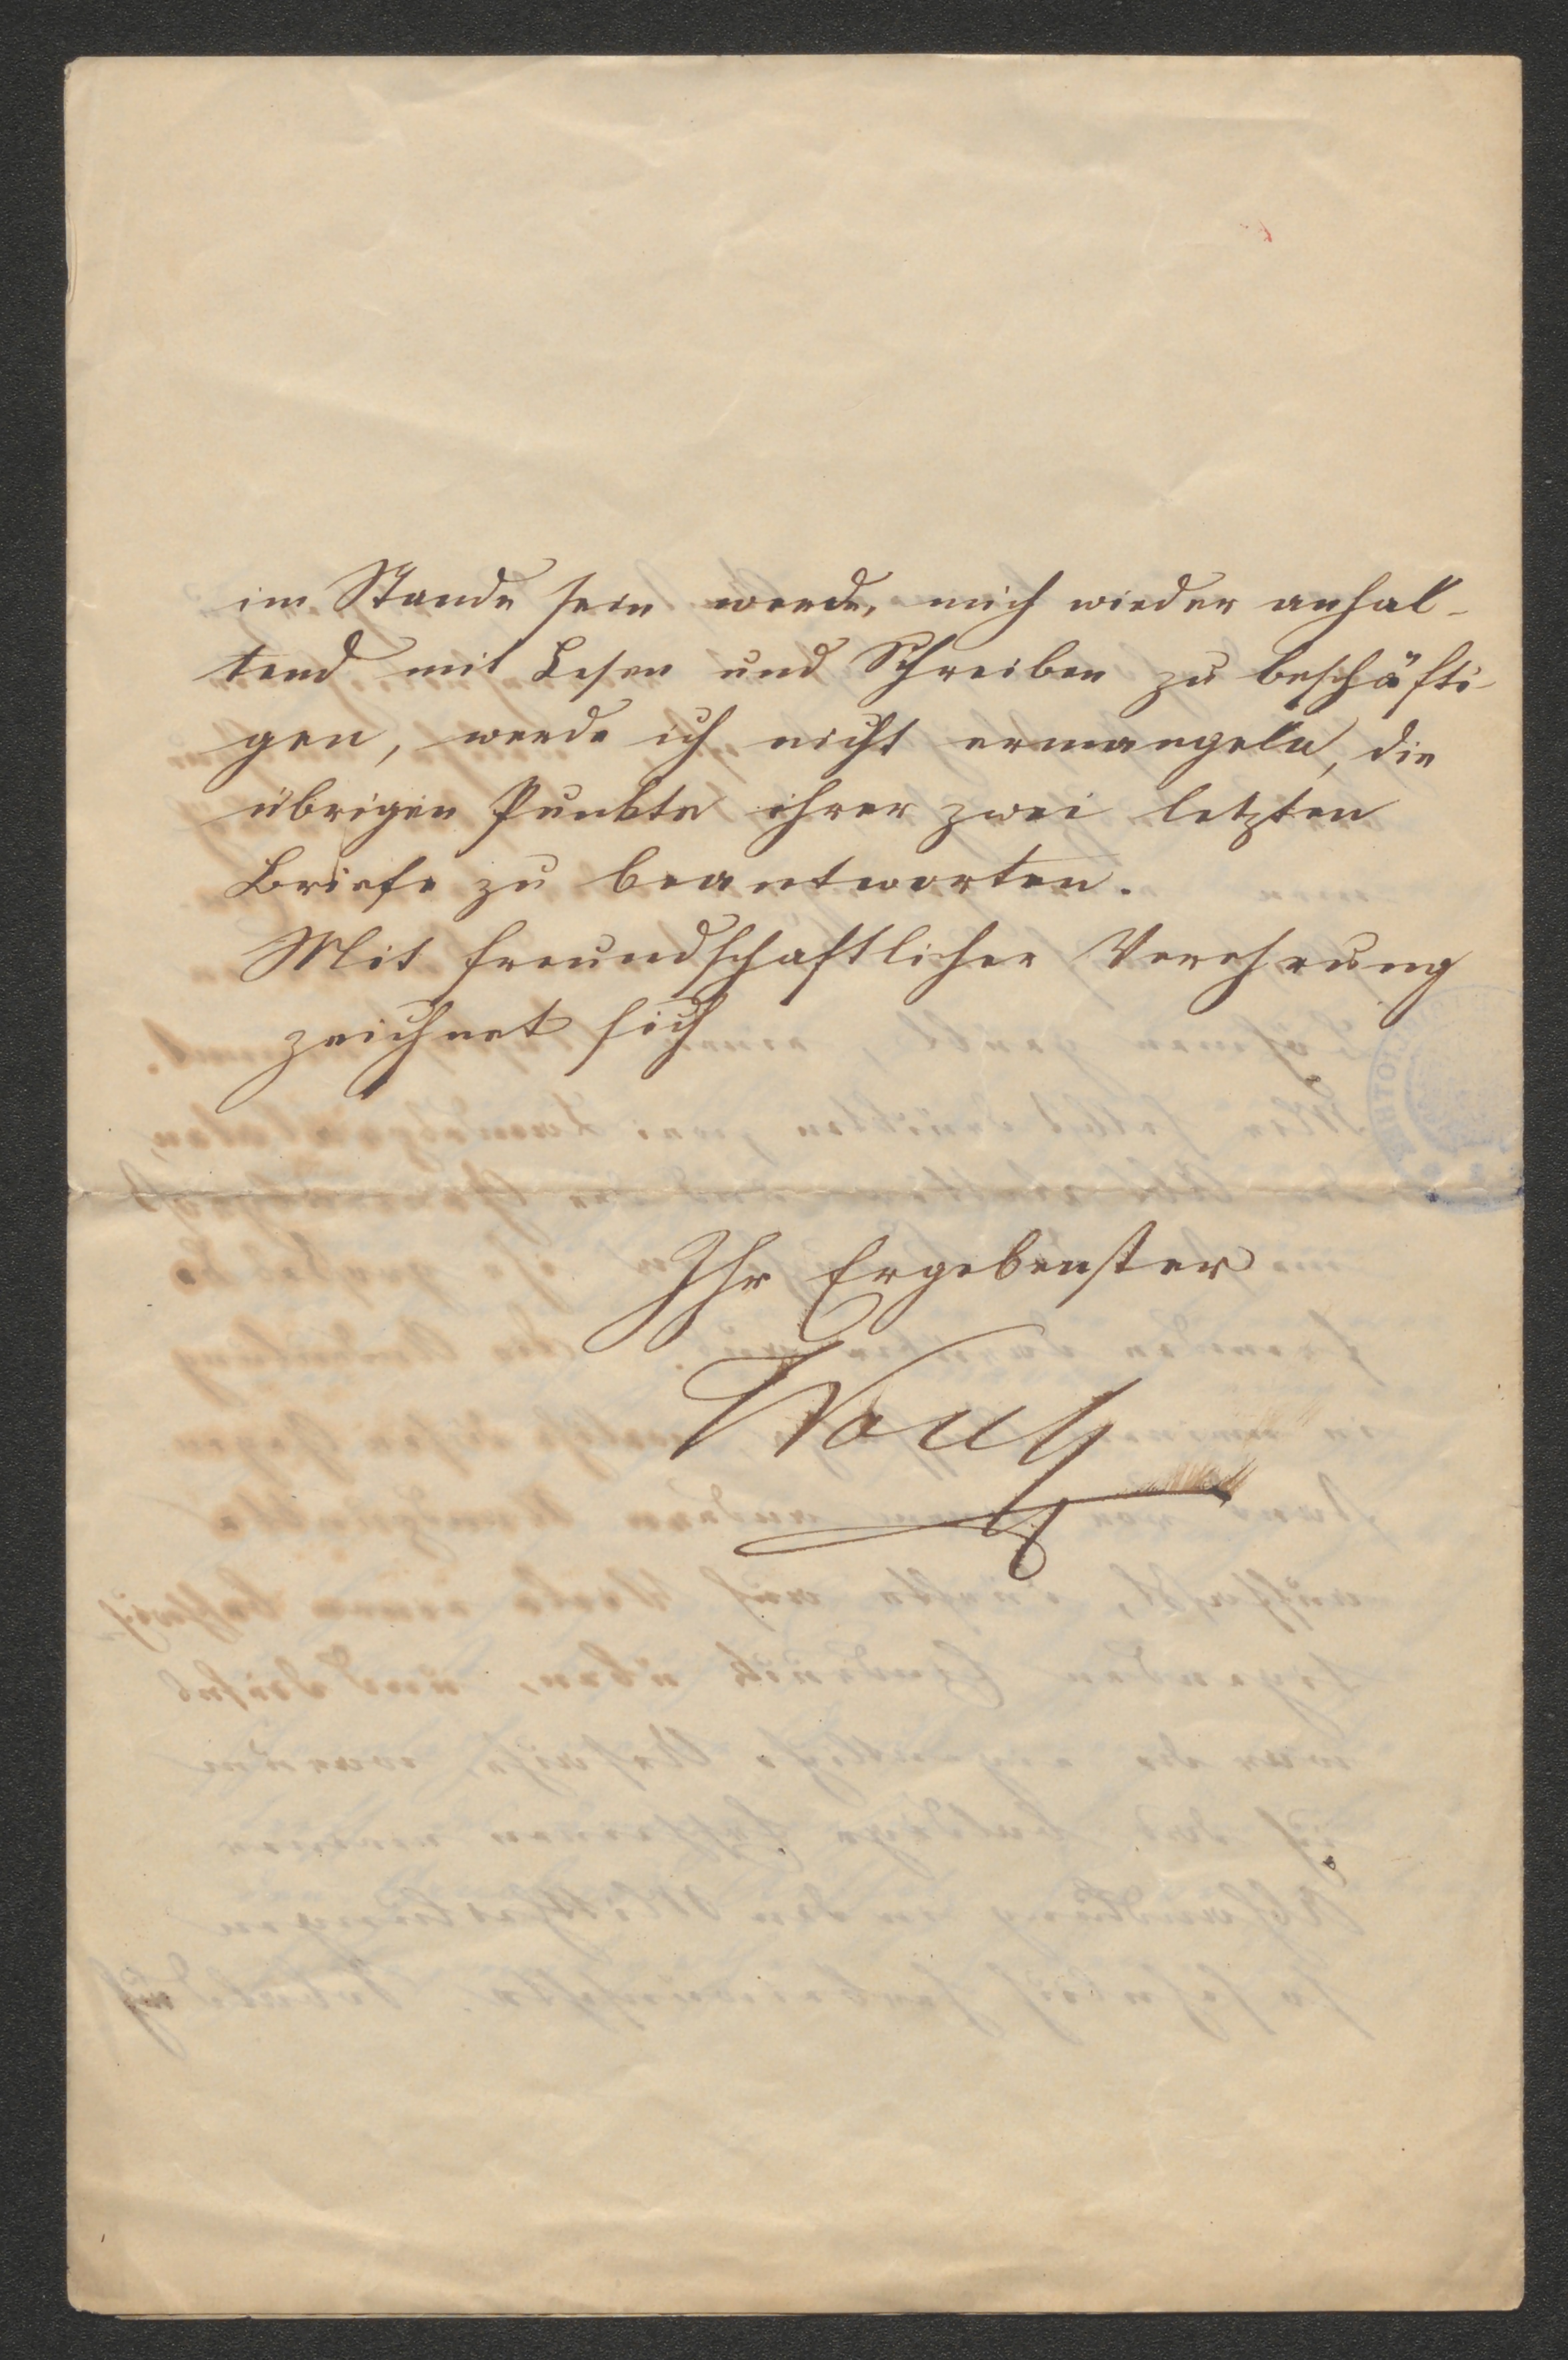 im Stande sein werde, mich wieder anhal-
tend mit Lesen und Schreiben zu beschäfti-
gen, werde ich nicht ermangeln, die
übrigen Punkte ihrer zwei letzten
Briefe zu beantworten.
Mit freundschaftlicher Verehrung
zeichnet sich
Ihr Ergebenster